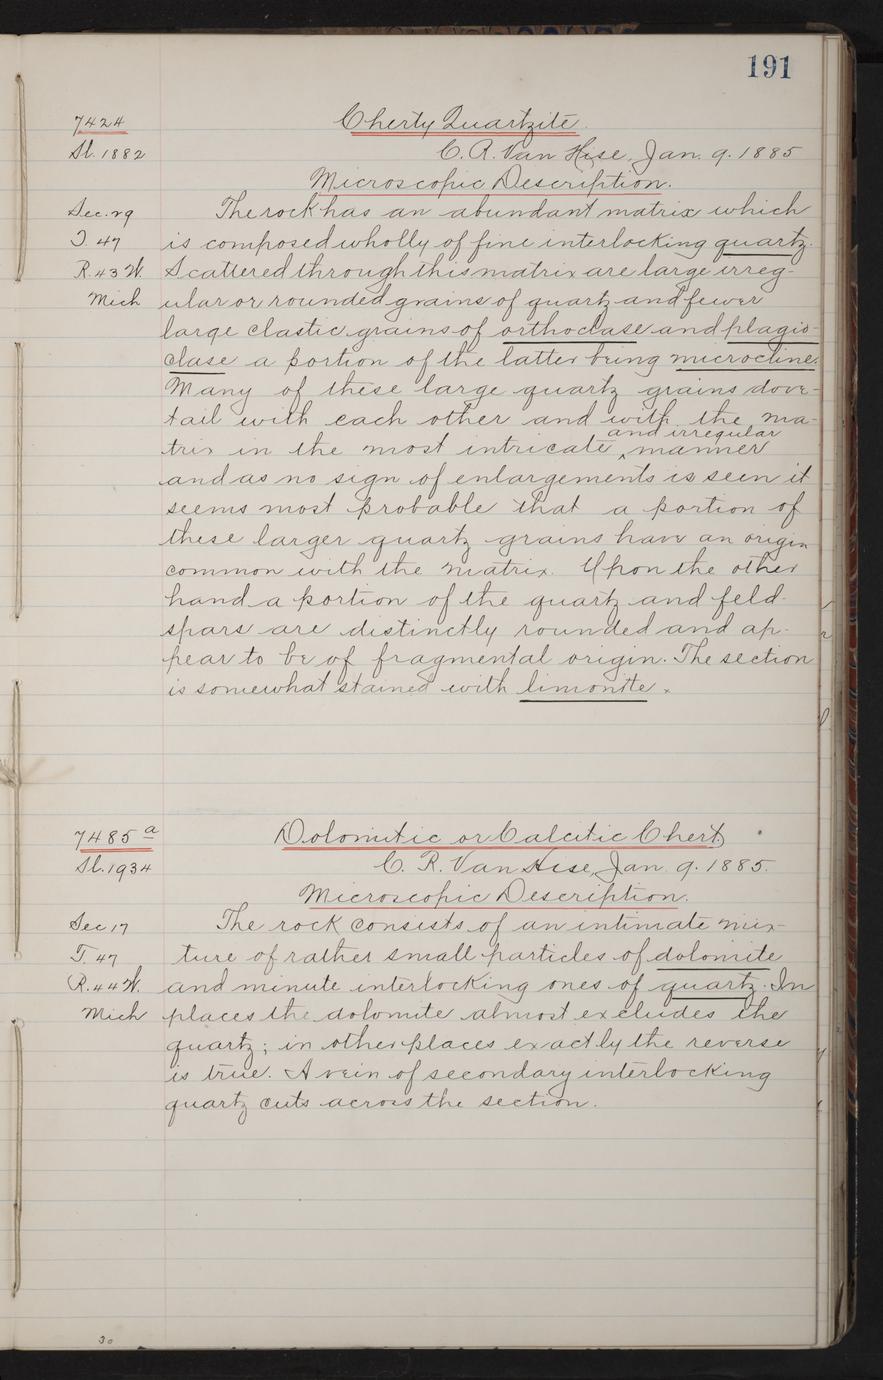 191
7424
Cherty Quartzite.
Sl. 1882
C. R. Van Hise, Jan. 9. 1885
Microscopic Description.
Sec. 29
The rock has an abundant matrix which
T. 47
is composed wholly of fine interlocking quartz.
R. 43 W.
Scattered through this matrix are large irreg-
Mich
ular or rounded grains of quartz and fewer
large clastic grains of orthoclase and plagio-
clase a portion of the latter being microcline.
Many of these large quartz grains dove-
tail with each other and with the ma-
trix in the most intricate ‸ and irregular manner
and as no sign of enlargements is seen it
seems most probable that a portion of
these larger quartz grains have an origin
common with the matrix. Upon the other
hand a portion of the quartz and feld-
spars are distinctly rounded and ap-
pear to be of fragmental origin. The section
is somewhat stained with limonite.
7485 a
Dolomitic or Calcitic Chert.
Sl. 1934
C. R. Van Hise, Jan. 9. 1885.
Microscopic Description.
Sec 17
The rock consists of an intimate mix-
T. 47
ture of rather small particles of dolomite
R. 44 W.
and minute interlocking ones of quartz. In
Mich
places the dolomite almost excludes the
quartz; in other places exactly the reverse
is true. A vein of secondary interlocking
quartz cuts across the section.
30